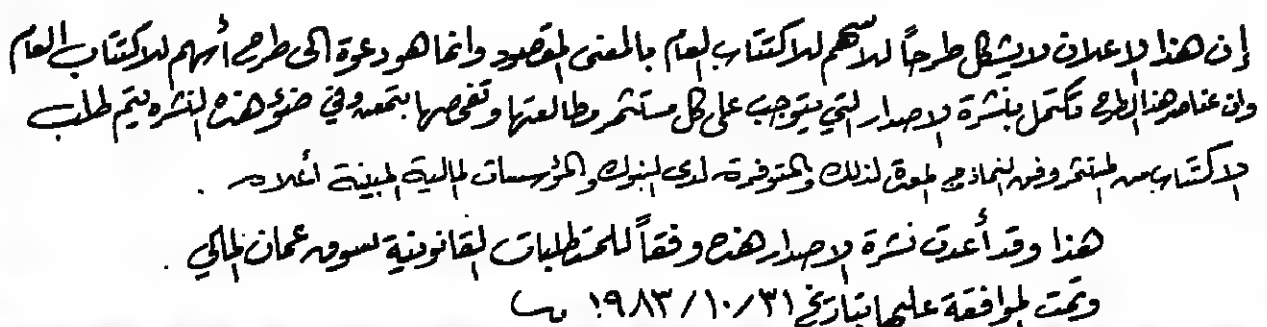 إن هذا الاعلان لا يشكل طرحاً للأسهم للاكتتاب العام بالمعنى المقصود وانما هو دعوة الى طرح أسهم للاكتتاب العام
وان عناصر هذا الطرح تكتمل بنشرة الاصدار التي يتوجب على كل مستثمر مطالعتها وتفحصها بتمعن وفي ضوء هذه النشره يتم طلب
الاكتتاب من المستثمر وفق النماذج المعدة لذلك والمتوفرة لدى البنوك والمؤسسات المالية المبينة أعلاه .
هذا وقد أعدت نشرة الاصدار هذه وفقاً للمتطلبات القانونية لسوق عمان المالي .
وتمت الموافقة عليها بتاريخ ٣١/١٠/١٩٨٣